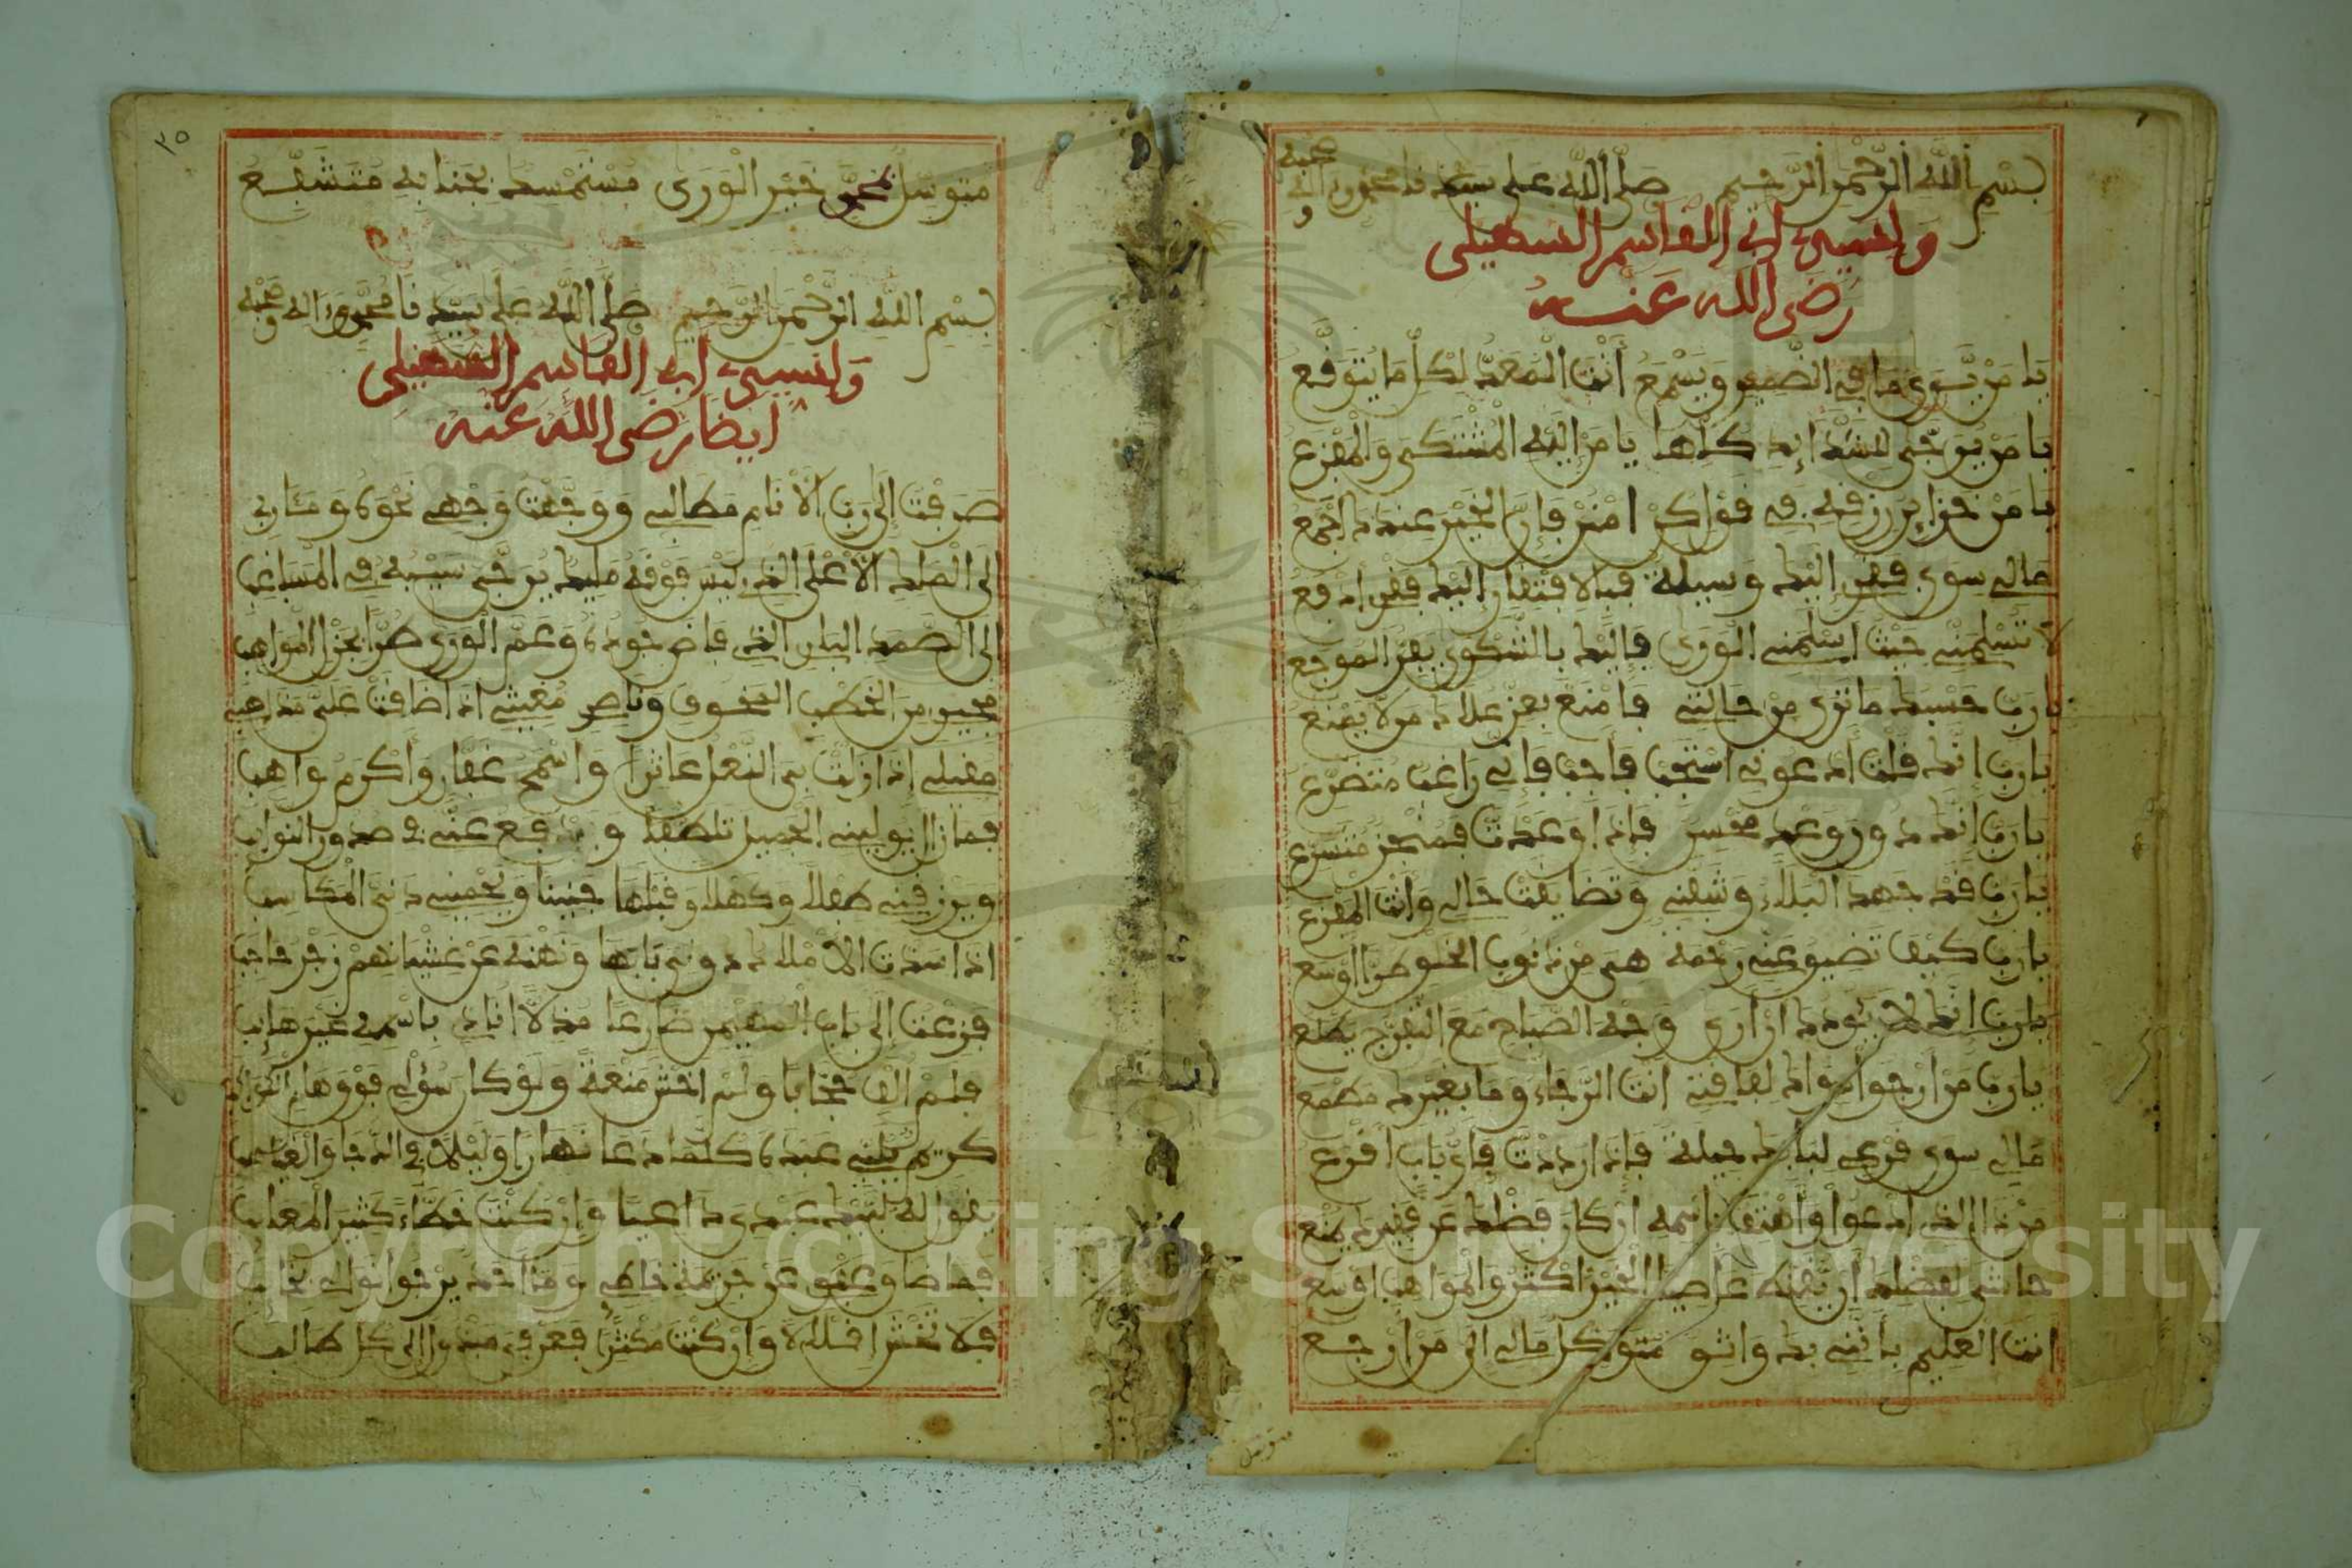 بسم الله الرحمن الرحيم صلى الله على سيدنا محمد وءاله وصحبه
ولسيدي ابي القاسم السهيلي
رضي الله عنه
يا من يرى ما في الضمير ويسمع أنت المعد لكل ما يتوقع
يا من يرجى للشدائد كلها يا من إليه المشتكى والمفزع
يا من خزاين رزقه في قول كن امنن فإن الخير عندك اجمع
مالي سوى فقري إليك وسيلة فبالافتقار إليك فقري ادفع
لا تسلمني حيث اسلمني الورى فإليك بالشكوى يفر الموجع
يا رب حسبك ما ترى من حالتي فامنع بعز علاك من لا يمنع
يا رب انك قلت ادعوني استجب فاجب فإني راغب متضرع
يا رب انك ذو وعد محسن فإذا وعدت فمنجز متسرع
يا رب قد جهد البلاء وشفني وتضايقت حالي وأنت المفزع
يا رب كيف تضيق عني رحمة هي من ذنوب الخلق طرا اوسع
يا رب انك لا يئودك ان ارى وجه الصباح مع التفرج يطلع
يا رب من ارجو سواك لفاقتي انت الرجاء وما بغيرك مطمع
مالي سوى قرعي لبابك حيلة فإذا رددت فأي باب اقرع
من ذا الذي ادعو وأهتف باسمه إن كان فضلك عن فقيرك يمنع
حاشى لفضلك أن تقنط عاصيا الخير أكثر والمواهب اوسع
انت العليم بأنني بك واثق متوكل مالي الى من ارجع
متوسل
٢٥
متوسل بمحمد خير الورى مستمسك بجنابه متشفع
بسم الله الرحمن الرحيم صلى الله على سيدنا محمد وءاله وصحبه
ولسيدي ابي القاسم السهيلي
ايضا رضي الله عنه
صرفت إلى رب الأنام مطالبي ووجهت وجهي نحوه ومئاربي
إلى الملك الأعلى الذي ليس فوقه مليك يرجى سيبه في المساغب
إلى الصمد البر الذي فاض جوده وعم الورى طرا بجزل المواهب
مجيري من الخطب المخوف وناصري مغيثي إذا ضاقت علي مذاهبي
مقيلي إذا زلت بي النعل عاثرا واسمح غفار وأكرم واهب
فما زال يوليني الجميل تلطفا ويدفع عني في صدور النوائب
ويرزقني طفلا وكهلا وقبلها جنينا ويحميني دني المكاسب
إذا سدت الأملاك دوني بابها ونهنه عن غشيانهم زجر حاجب
فزعت إلى باب المهيمن ضارعا مذلا انادي باسمه غير هائب
فلم ألف حجابا ولم اخش منعة ولو كان سؤلي فوق هام الكواكب
كريم يلبي عبده كلما دعا نهارا وليلا في الدجا والغياهب
يقول له لبيك عبدي داعيا وإن كنت خطاء كثير المعايب
فما ضاق عفوي عن جريمة خاطئ وما احد يرجو نوالي بخائب
فلا تخش إقلالا وإن كنت مكثرا فعرفي مبذول إلى كل طالب